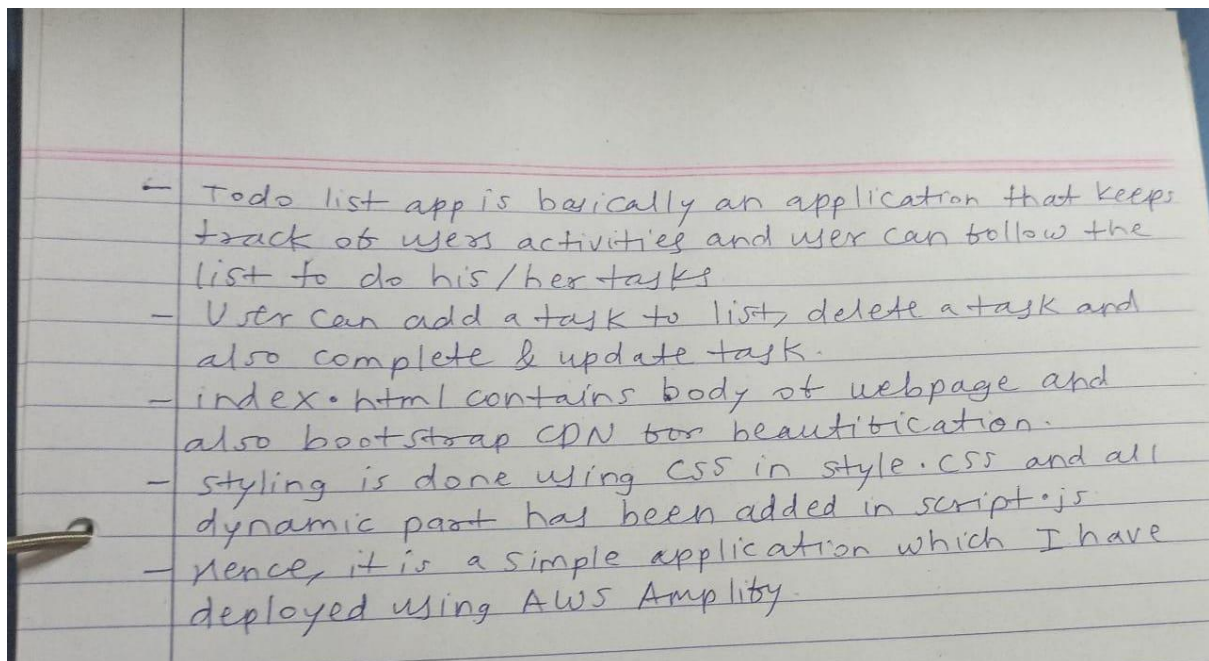 - Todo list app is basically an application that keeps
track of users activities and user can follow the
list to do his/her tasks
- User can add a task to list, delete a task and
also complete & update task.
- index.html contains body of webpage and
also bootstrap CDN for beautification.
- styling is done using CSS in style.css and all
dynamic part has been added in script.js.
- Hence, it is a simple application which I have
deployed using AWS Amplify.